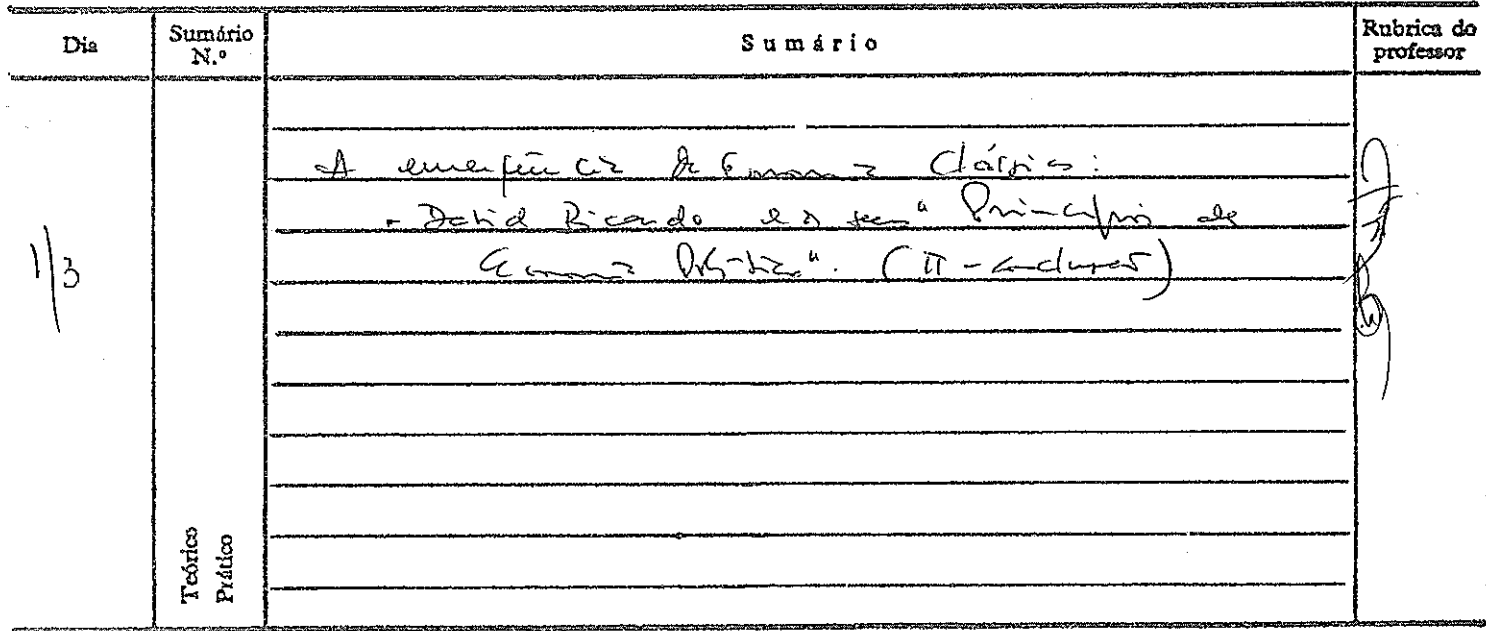 Dia
Sumário N.º
Sumário
Rubrica do professor
1/3
A emergência da Economia Clássica:
- David Ricardo e os seus "Princípios de
Economia Política". (II - conclusão)
Teórico
Prático